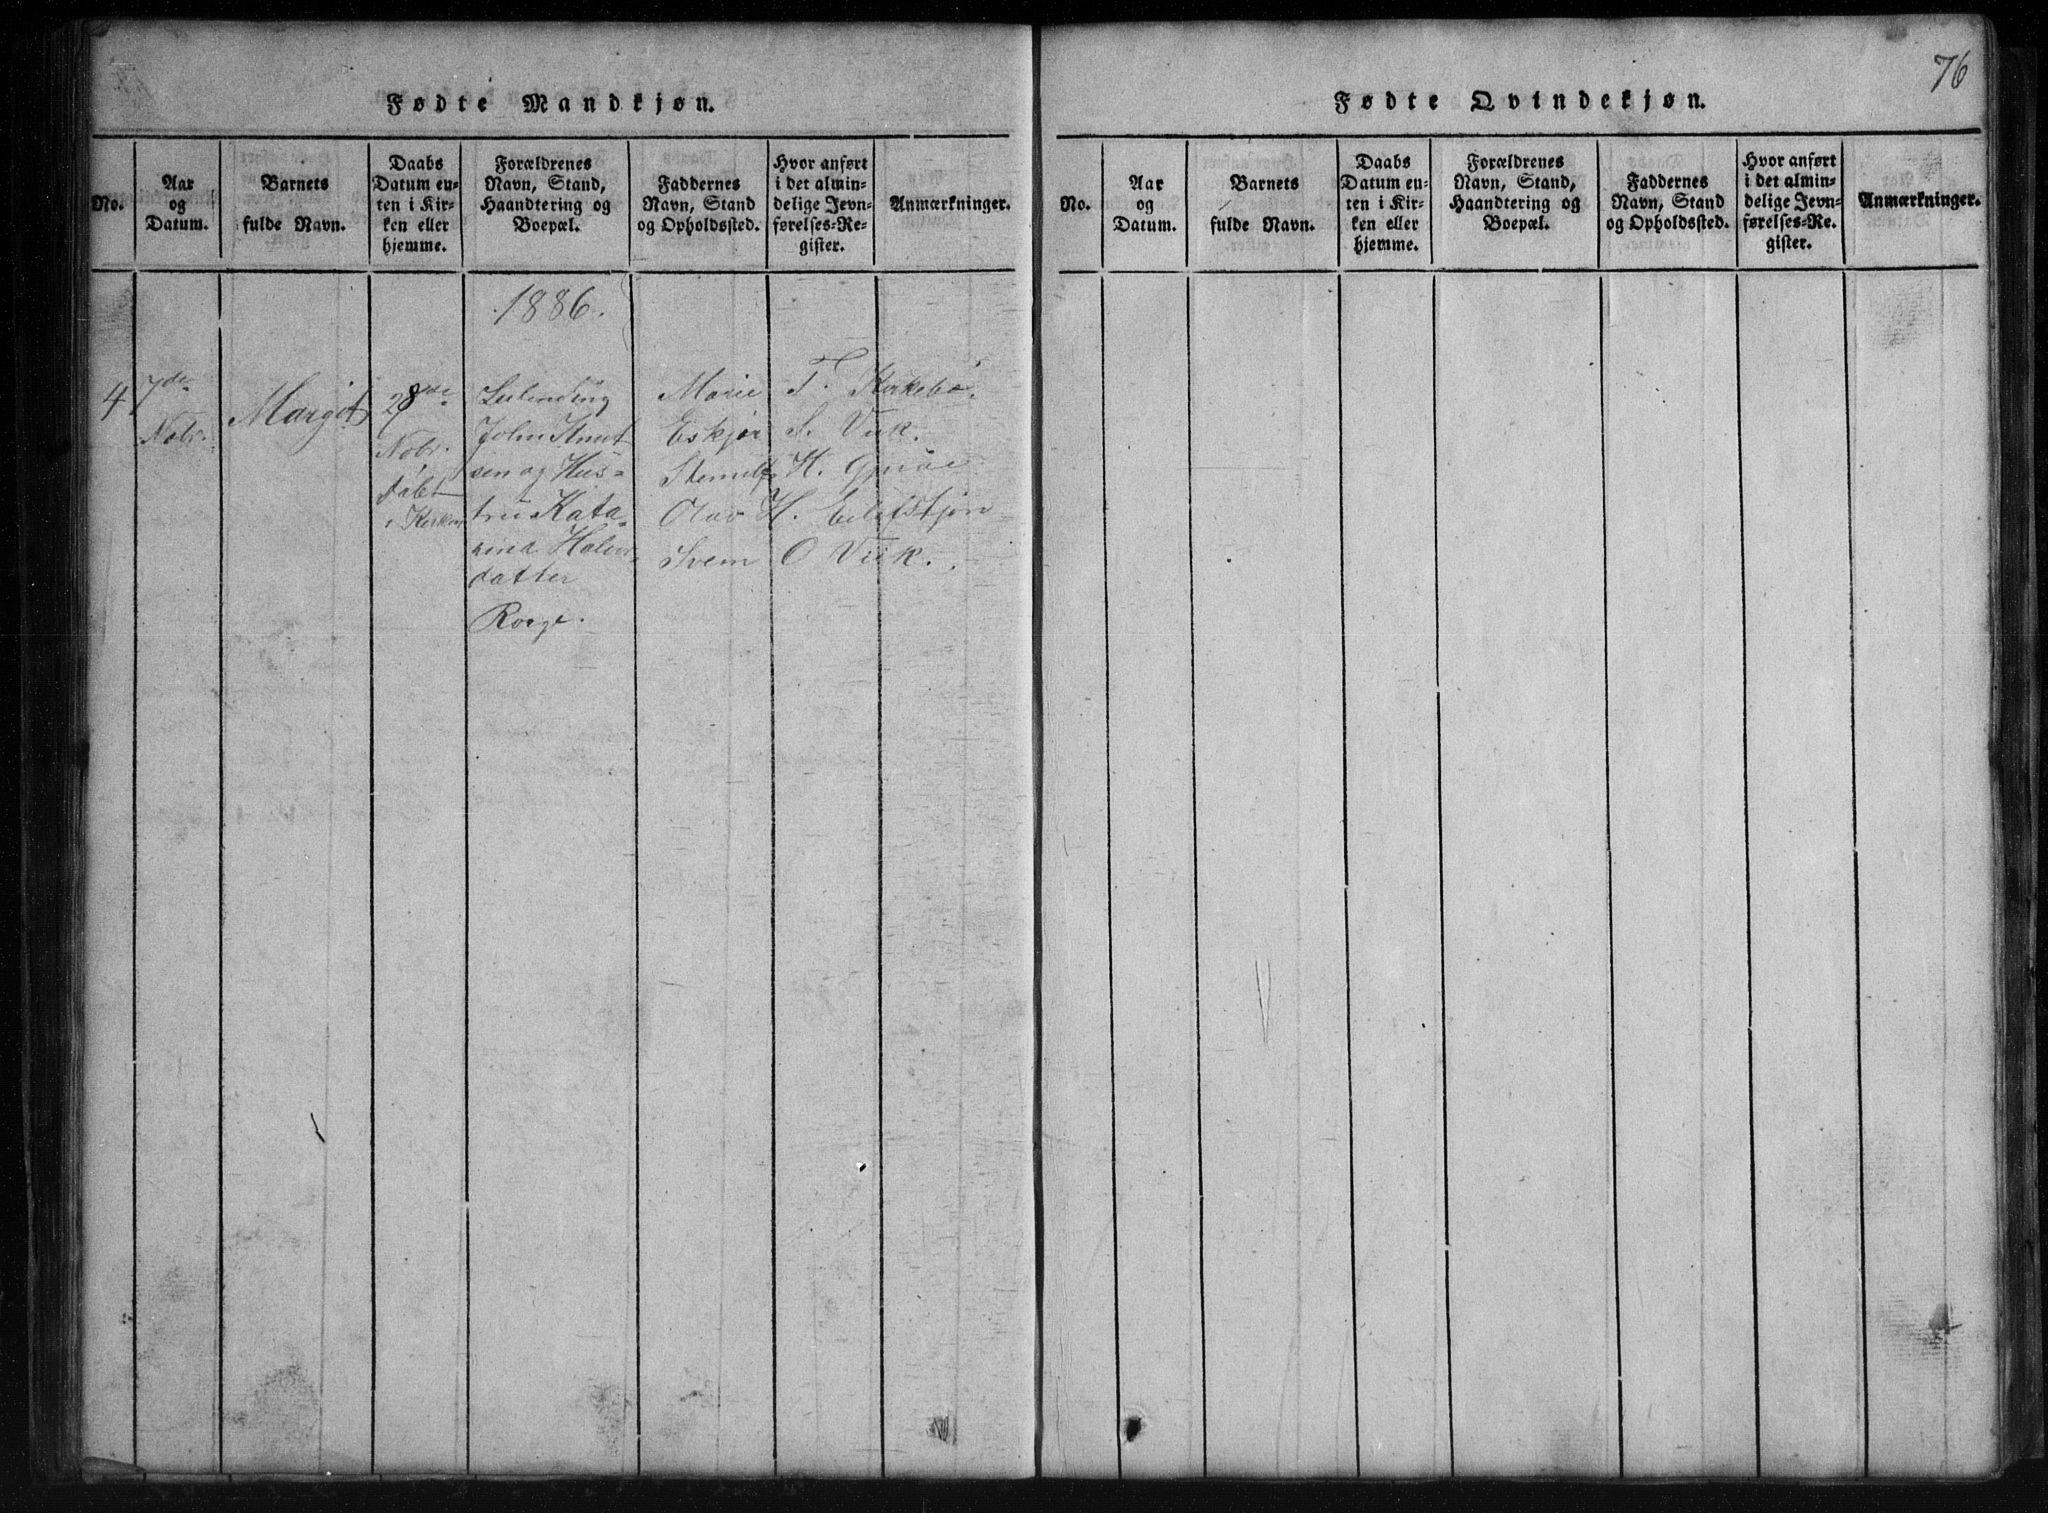 76
Fødte Mandkjøn.
No.
Aar
og
Datum.
Barnets
fulde Navn.
Daabs
Datum en-
ten i Kir-
ken eller
hjemme.
Forældrenes
Navn, Stand,
Haandtering og
Boepæl.
Faddernes
Navn, Stand
og Opholdssted.
Hvor anført
i det almin-
delige Jevn-
førelses-Re-
gister.
Anmærkninger.
1886.
4
7de
Nobr.
Margit
28de
Nobr.
døbt
i Kirken
John Knut
sen og Hus-
tru Kata-
rina Halvor
datter
Marie T. Kirkebø.
Eskjer S. Viik.
H.
Olav H. Eilefstjøn
Svein O Viik.
Fødte Qvindekjøn.
No.
Aar
og
Datum.
Barnets
fulde Navn.
Daabs
Datum en-
ten i Kir-
ken eller
hjemme.
Forældrenes
Navn, Stand,
Haandtering og
Boepæl.
Faddernes
Navn, Stand
og Opholdssted.
Hvor anført
i det almin-
delige Jevn-
førelses-Re-
gister.
Anmærkninger.